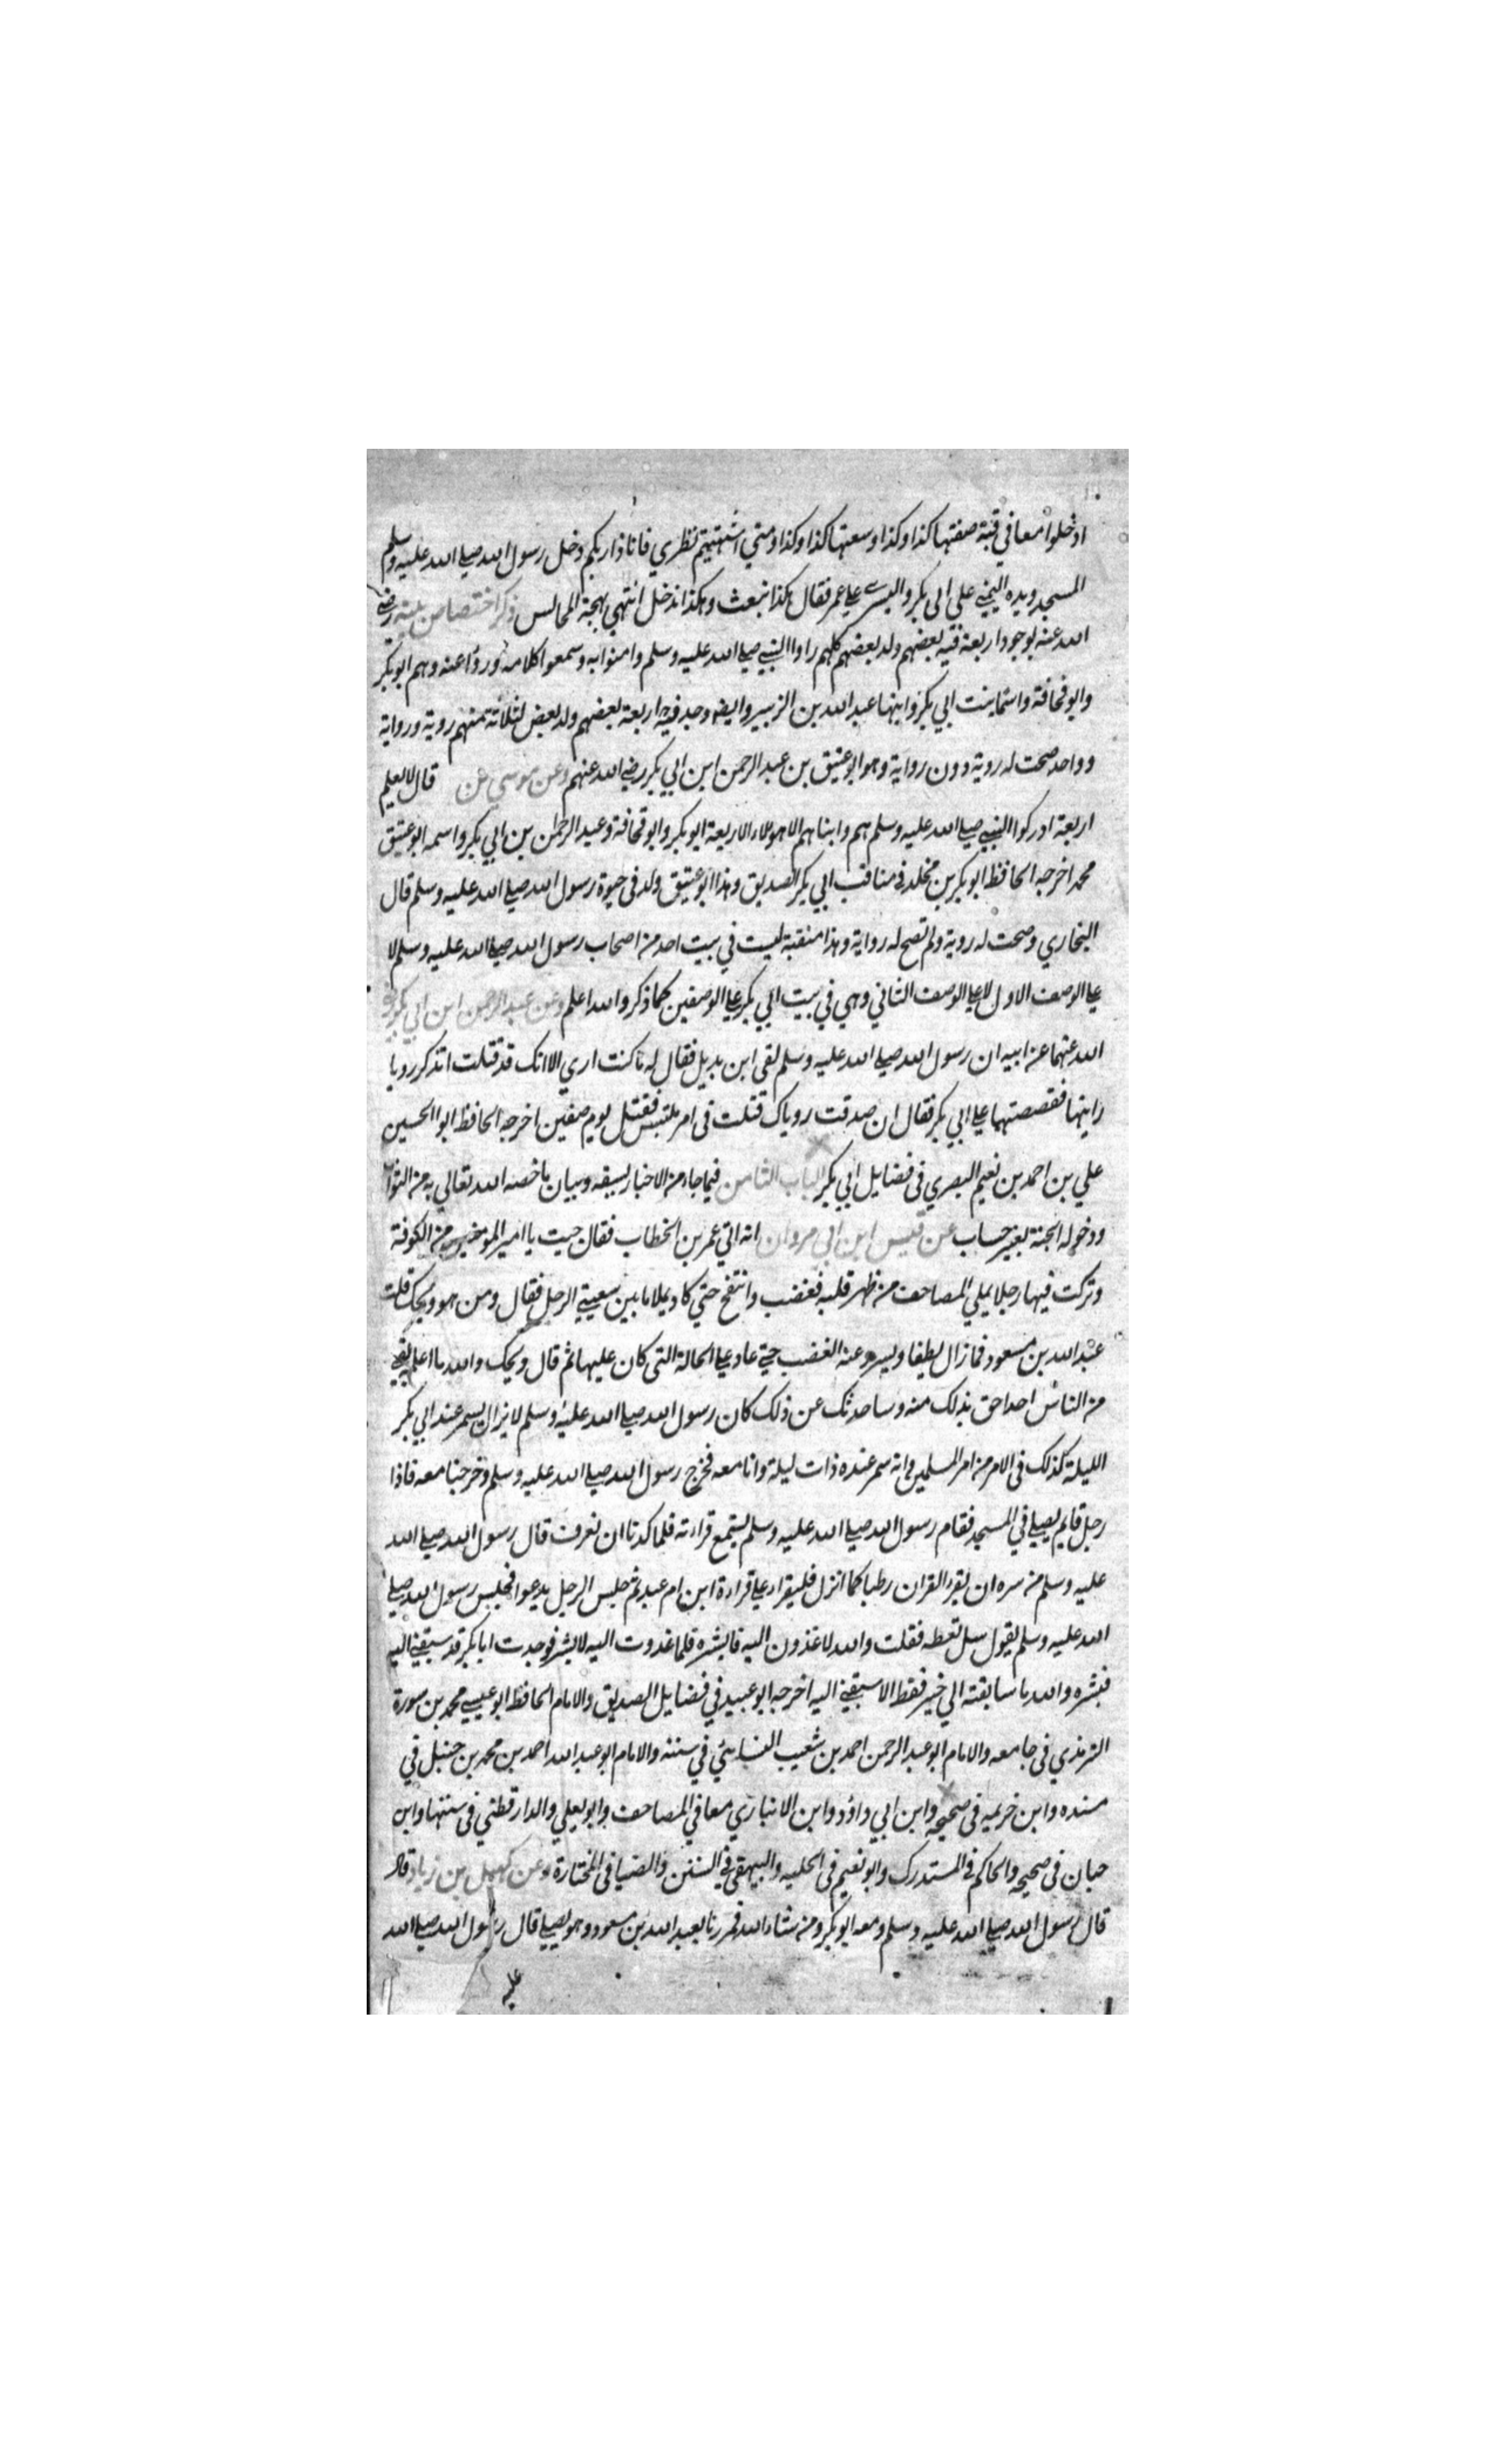 ادخلوا معا في قبة صفتها كذا وكذا وسعتها كذا وكذا ومتي اشتهيتم نظري فانا ذا ربكم دخل رسول الله صلے الله عليه وسلم
المسجد ويده اليمنے علي ابي بكر واليسرے علے عمر فقال هكذا نبعث وهكذا ندخل انتهي بهجة المجالس ذكر اختصاص بيته رضے
الله عنه بوجود اربعة فيه بعضهم ولد بعضهم كلهم راوا النبے صلے الله عليه وسلم وامنوا به وسمعوا كلامه ورووا عنه وهم ابو بكر
وابو قحافة واسما بنت ابي بكر وابنها عبد الله بن الزبير وايضا وجد فيه اربعة بعضهم ولد بعض لثلاثة منهم روية ورواية
وواحد صحت له روية دون رواية وهو ابو عتيق بن عبد الرحمن ابن ابي بكر رضے الله عنهم وعن موسي عن قال لا يعلم
اربعة ادركوا النبے صلے الله عليه وسلم هم وابناهم الا هولاء الاربعة ابو بكر وابو قحافة وعبد الرحمن بن ابي بكر واسمه ابو عتيق
محمد اخرجه الحافظ ابو بكر بن مخلد في مناقب ابي بكر الصديق وهذا ابو عتيق ولد في حيوة رسول الله صلے الله عليه وسلم قال
البخاري وصحت له روية ولم تصح له رواية وهذا منقبة ليست في بيت احد من اصحاب رسول الله صلے الله عليه وسلم لا
علے الوصف الاول لا علے الوصف الثاني وهي في بيت ابي بكر علے الوصفين كما ذكر والله اعلم وعن عبد الرحمن ابن ابي بكر رضے
الله عنهما عن ابيه ان رسول الله صلے الله عليه وسلم لقي ابن بديل فقال له ما كنت اري الا انك قد قتلت اتذكر رويا
رايتها فقصصتهما علے ابي بكر فقال ان صدقت روياك قتلت في امر ملتبس فقتل يوم صفين اخرجه الحافظ ابوا الحسين
علي بن احمد بن نعيم البصري في فضايل ابي بكر الباب الثامن فيما جاء من الاخبار بسبقه وبيان ما خصه الله تعالي به من الثواب
ودخوله الجنة بغير حساب عن قيس ابن ابي مروان انه اتي عمر بن الخطاب فقال جيت يا امير المومنين من الكوفة
وتركت فيها رجلا يملي المصاحف من ظهر قلبه فغضب وانتفخ حتي كاد يملا ما بين شعبتے الرحل فقال ومن هو ويحك قلت
عبد الله بن مسعود فما زال يطفا ويسرے عنه الغضب حتے عاد علے الحالة التي كان عليها ثم قال ويحك والله ما اعلم بقے
من الناس احد احق بذلك منه وساحدثك عن ذلك كان رسول الله صلے الله عليه وسلم لا يزال يسمر عند ابي بكر
الليلة كذلك في الامر من امر المسلمين وانه سمر عنده ذات ليلة وانا معه فخرج رسول الله صلے الله عليه وسلم وخرجنا معه فاذا
رجل قايم يصلے في المسجد فقام رسول الله صلے الله عليه وسلم يستمع قراءته فلما كدنا ان نعرف قال رسول الله صلے الله
عليه وسلم من سره ان يقرء القران رطبا كما انزل فليقراء علے قراءة ابن ام عبد ثم جلس الرجل يدعوا فجلس رسول الله صلے
الله عليه وسلم يقول سل تعطه فقلت والله لاغدون اليه فابشره فلما غدوت اليه لابشره فوجدت ابا بكر قد سبقنے اليه
فبشره والله ما سابقته الي خير فقط الا سبقنے اليه اخرجه ابو عبيد في فضايل الصديق والامام الحافظ ابو عيسے محمد بن سورة
الترمذي في جامعه والامام ابو عبد الرحمن احمد بن شعيب النسايئي في سننه والامام ابو عبد الله احمد بن محمد بن حنبل في
مسنده وابن خزيمه في صحيحه وابن ابي داؤد وابن الانباري معا في المصاحف وابو يعلي والدارقطني في سننها وابن
حبان في صحيحه والحاكم في المستدرك وابو نعيم في الحليه والبيهقي في السنن والضيا في المختارة وعن كميل بن زياد قال
قال رسول الله صلے الله عليه وسلم ومعه ابو بكر ومن شاء الله فمررنا بعبد الله بن مسعود وهو يصلے قال رسول الله صلے الله
عليه